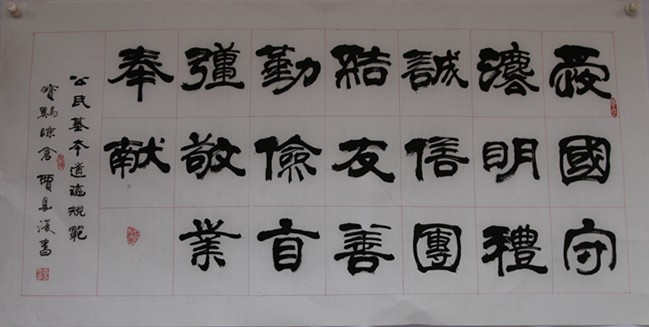 愛國守
灋明禮
誠信團
結友善
勤儉自
彊敬業
奉献
公民基本道德規範
寶鷄陳倉賈書